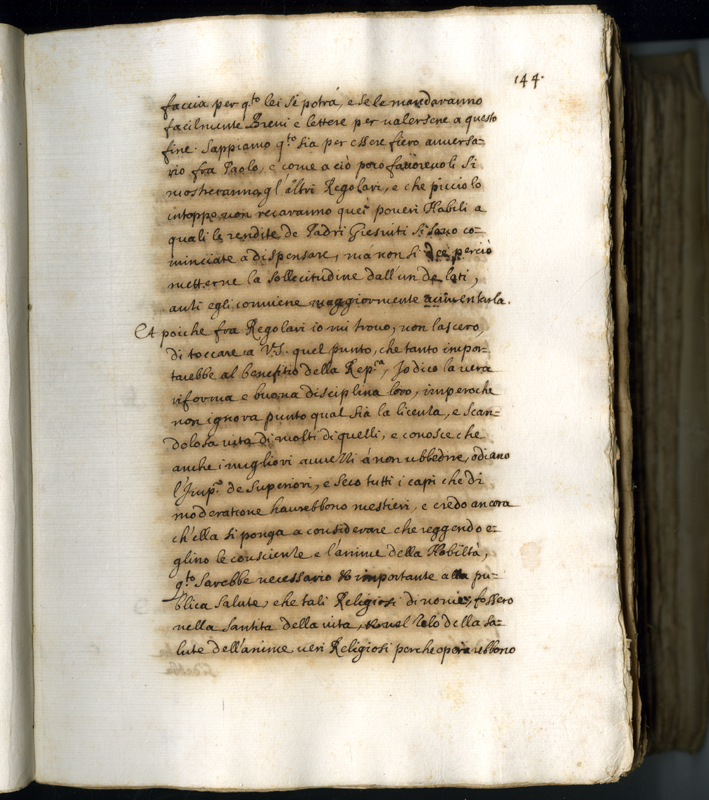 144.
faccia per q.to lei si potrà, e se le mandaranno
facilmente Brevi e lettere per valersene a questo
fine. Sappiamo q.to sia per essere fiero avversa-
rio fra Paolo, e come a ciò poco favorevoli si
mostreranno gl'altri Regolari, e che picciolo
intoppo non recaranno quei poveri Nobili a
quali le rendite de Padri Giesuiti si sono co-
minciate a dispensare, mà non si deè perciò
metterne la sollecitudine dall'un de lati,
anti egli conviene maggiormente aumentarla.
Et poiche fra Regolari io mi trovo, non lascerò
di toccare a V.S. quel punto, che tanto impor-
tarebbe al benefitio della Rep.ca, Io dico la vera
riforma e buona disciplina loro, imperoche
non ignora punto qual sia la licenta, e scan-
dolosa vita di molti di quelli, e conosce che
anche i migliori avvelli à non ubbedire, odiano
l'Imp.o de Superiori, e seco tutti i capi che di
moderatione haurebbono mestieri, e credo ancora
ch'ella si ponga a considerare che reggendo e-
glino le conscientie e l'anime della Nobiltà,
q.to sarebbe necessario et importante alla pu-
blica salute, che tali Religiosi di nome, fossero
nella santita della vita, et nel zelo della sa-
lute dell'anime veri Religiosi perche operarebbono